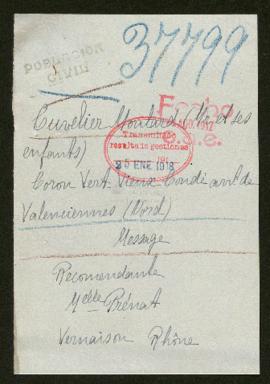 POBLACION
CIVIL
37799
Fecha
Cuvelier Moulard (Mr et ses
Transmitido
resultado gestiones
25 ENE 1918
enfants)
Coron Vert Vieux Condé arrt de
Valenciennes (Nord)
Message
Recomendante
Melle Prénat
Vernaison Rhône